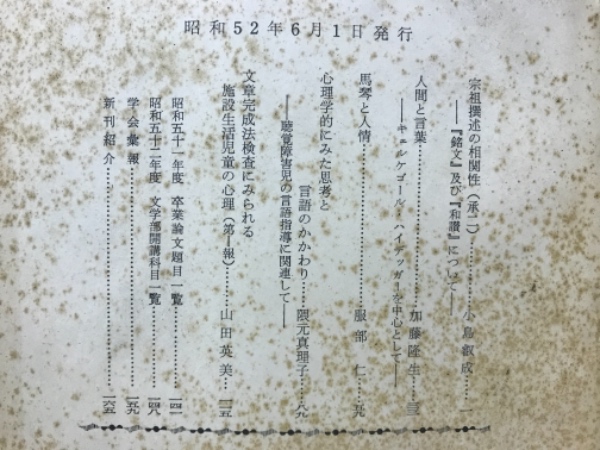 昭和52年6月1日発行
宗祖撰述の相関性(承二)……小島叡成……一
――『銘文』及び『和讃』について――
人間と言葉……加藤隆生……三三
――キェルケゴール・ハイデッガーを中心として――
馬琴と人情……服部仁……五九
心理学的にみた思考と
言語のかかわり……隈元真理子……八九
――聴覚障害児の言語指導に関連して――
文章完成法検査にみられる
施設生活児童の心理(第1報)……山田英美……一一五
昭和五十一年度 卒業論文題目一覧……一四一
昭和五十二年度 文学部開講科目一覧……一四八
学会彙報……一五九
新刊紹介……一六五